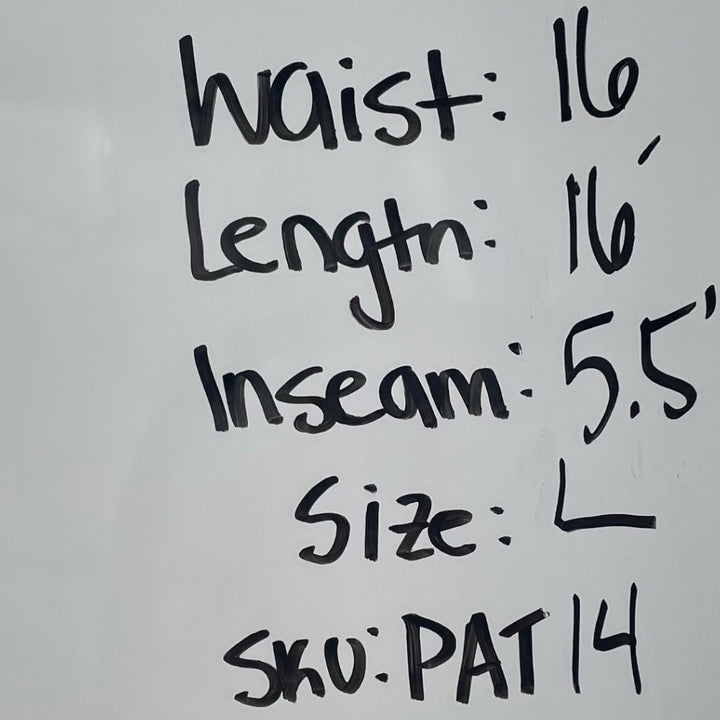 Waist: 16
Length: 16'
Inseam: 5.5'
Size: L
SKU: PAT14